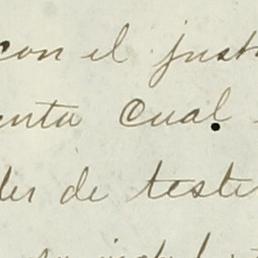 con el just
enta cual
der de teste